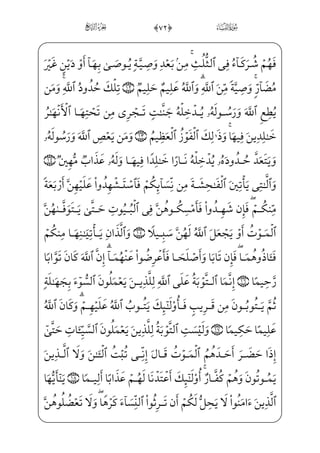 الجزء الرابع ﴿٧٢﴾ سورة النساء
فَهُمْ شُرَكَآءُ فِى ٱلثُّلُثِ ۚ مِنۢ بَعْدِ وَصِيَّةٍ يُوصَىٰ بِهَآ أَوْ دَيْنٍ غَيْرَ
مُضَآرٍّ ۚ وَصِيَّةً مِّنَ ٱللَّهِ ۗ وَٱللَّهُ عَلِيمٌ حَلِيمٌ ۝١٢ تِلْكَ حُدُودُ ٱللَّهِ ۚ وَمَن
يُطِعِ ٱللَّهَ وَرَسُولَهُۥ يُدْخِلْهُ جَنَّـٰتٍ تَجْرِى مِن تَحْتِهَا ٱلْأَنْهَـٰرُ
خَـٰلِدِينَ فِيهَا ۚ وَذَٰلِكَ ٱلْفَوْزُ ٱلْعَظِيمُ ۝١٣ وَمَن يَعْصِ ٱللَّهَ وَرَسُولَهُۥ
وَيَتَعَدَّ حُدُودَهُۥ يُدْخِلْهُ نَارًا خَـٰلِدًا فِيهَا وَلَهُۥ عَذَابٌ مُّهِينٌ ۝١٤
وَٱلَّـٰتِى يَأْتِينَ ٱلْفَـٰحِشَةَ مِن نِّسَآئِكُمْ فَٱسْتَشْهِدُوا۟ عَلَيْهِنَّ أَرْبَعَةً
مِّنكُمْ ۖ فَإِن شَهِدُوا۟ فَأَمْسِكُوهُنَّ فِى ٱلْبُيُوتِ حَتَّىٰ يَتَوَفَّىٰهُنَّ
ٱلْمَوْتُ أَوْ يَجْعَلَ ٱللَّهُ لَهُنَّ سَبِيلًا ۝١٥ وَٱلَّذَانِ يَأْتِيَـٰنِهَا مِنكُمْ
فَـَٔاذُوهُمَا ۖ فَإِن تَابَا وَأَصْلَحَا فَأَعْرِضُوا۟ عَنْهُمَآ ۗ إِنَّ ٱللَّهَ كَانَ تَوَّابًا
رَّحِيمًا ۝١٦ إِنَّمَا ٱلتَّوْبَةُ عَلَى ٱللَّهِ لِلَّذِينَ يَعْمَلُونَ ٱلسُّوٓءَ بِجَهَـٰلَةٍ
ثُمَّ يَتُوبُونَ مِن قَرِيبٍ فَأُو۟لَـٰٓئِكَ يَتُوبُ ٱللَّهُ عَلَيْهِمْ ۗ وَكَانَ ٱللَّهُ
عَلِيمًا حَكِيمًا ۝١٧ وَلَيْسَتِ ٱلتَّوْبَةُ لِلَّذِينَ يَعْمَلُونَ ٱلسَّيِّـَٔاتِ حَتَّىٰٓ
إِذَا حَضَرَ أَحَدَهُمُ ٱلْمَوْتُ قَالَ إِنِّى تُبْتُ ٱلْـَٔـٰنَ وَلَا ٱلَّذِينَ
يَمُوتُونَ وَهُمْ كُفَّارٌ ۚ أُو۟لَـٰٓئِكَ أَعْتَدْنَا لَهُمْ عَذَابًا أَلِيمًا ۝١٨ يَـٰٓأَيُّهَا
ٱلَّذِينَ ءَامَنُوا۟ لَا يَحِلُّ لَكُمْ أَن تَرِثُوا۟ ٱلنِّسَآءَ كَرْهًا ۖ وَلَا تَعْضُلُوهُنَّ